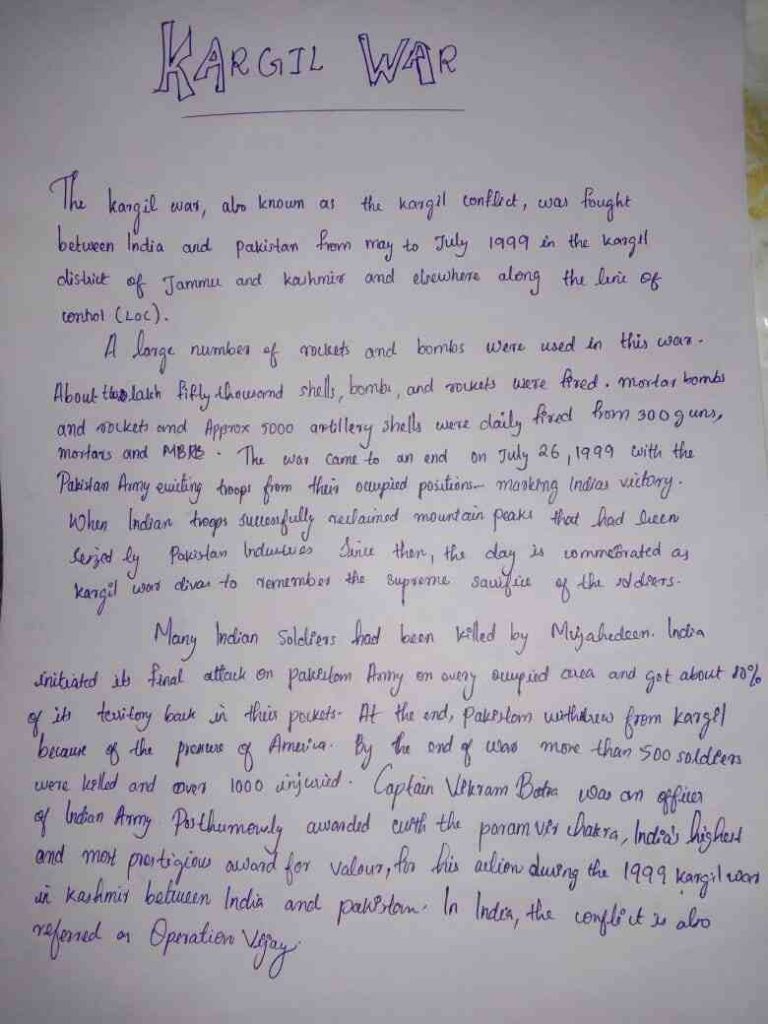 KARGIL WAR
The kargil war, also known as the kargil conflict, was fought
between India and pakistan from may to July 1999 in the kargil
district of Jammu and kashmir and elsewhere along the line of
control (LOC).
A large number of rockets and bombs were used in this war.
About two lakh fifty thousand shells, bombs, and rockets were fired. mortar bombs
and rockets and Approx 5000 artillery shells were daily fired from 300 guns,
mortars and MBRL. The war came to an end on July 26, 1999 with the
Pakistan Army evicting troops from their occupied positions- marking Indias victory.
When Indian troops successfully reclaimed mountain peaks that had been
Seized by Pakistan Since then, the day is commerated as
kargil war divas to remember the supreme sacrifice of the soldiers.
Many Indian soldiers had been killed by Mujahedeen. India
initiated its final attack on pakistan Army on every occupied area and got about 80%
of its territory back in their pockets. At the end, Pakistan withdrew from kargil
because of the pressure of America. By the end of war more than 500 soldiers
were killed and over 1000 injuried. Captain Vikram Batra was an officer
of Indian Army Posthumously awarded with the param vir chakra, India's highest
and most prestigious award for valour, for his action during the 1999 kargil war
in kashmir between India and pakistan. In India, the conflict is also
referred as Operation Vijay.